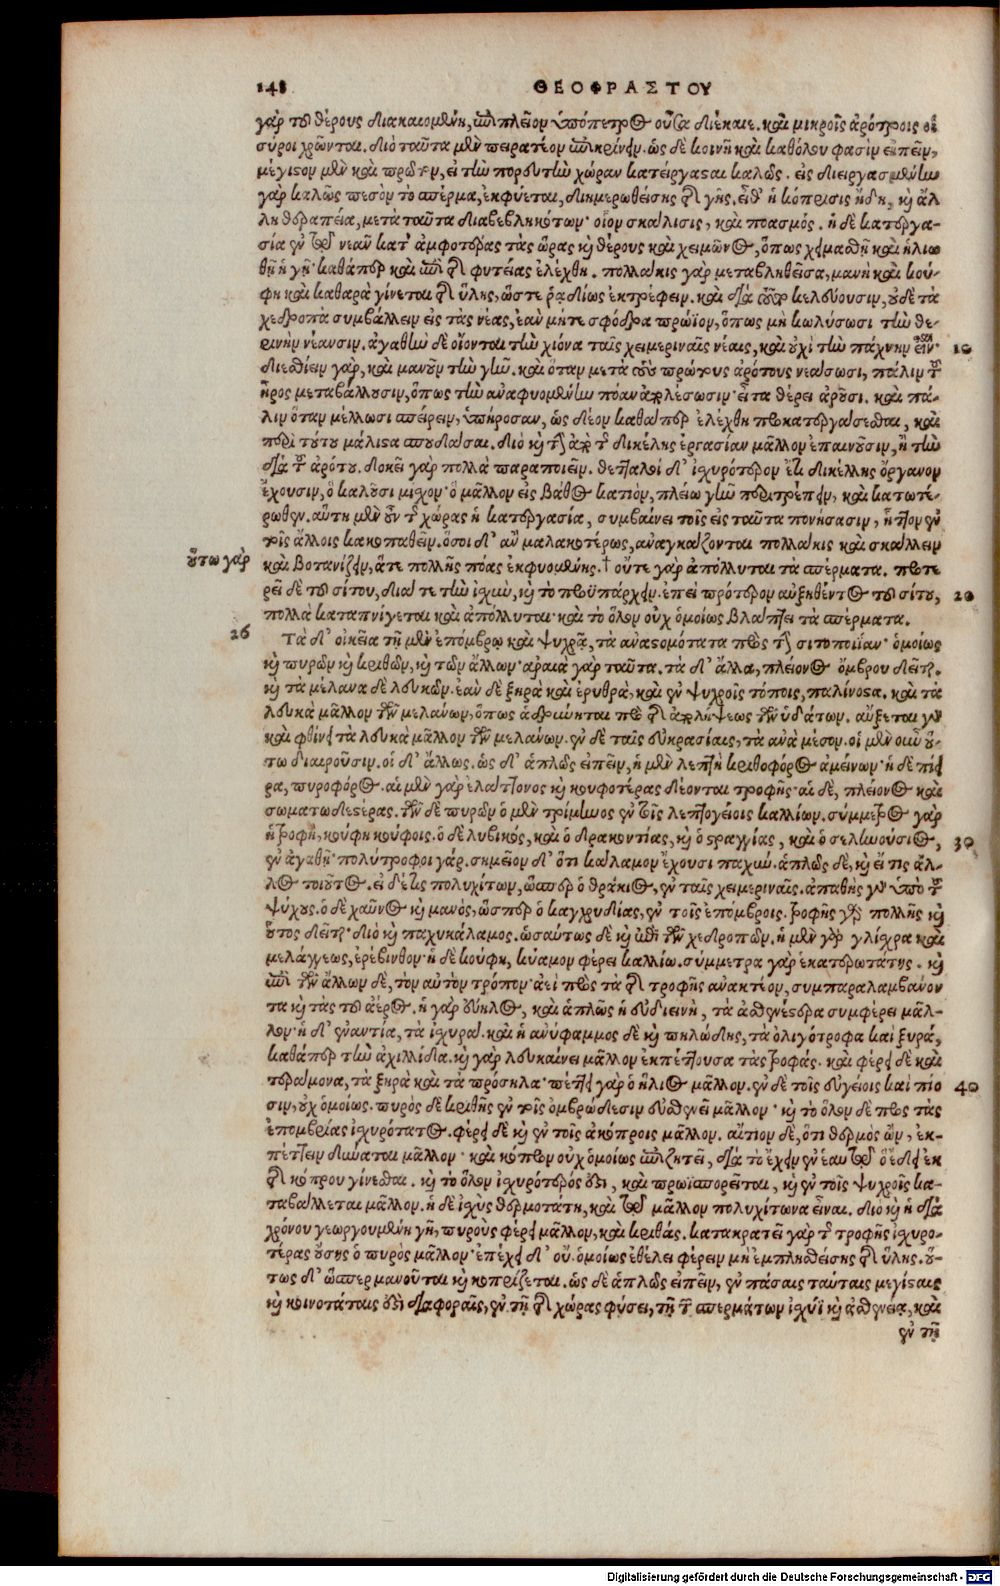 148
ΘΕΟΦΡΑΣΤΟΥ
γὰρ τοῦ θέρους διακαιομένη, ἐπὶ πλεῖον ὑπόπετρος οὖσα διέκαιε. καὶ μικροῖς ἀρότροις οἱ
σύροι χρῶνται. διὸ ταῦτα μὲν πειρατέον ἐπικρίνειν. ὡς δὲ κοινῇ καὶ καθόλου φασὶν εἰπεῖν,
μέγιστον μὲν καὶ πρῶτον, εἰ τὴν πορευτὴν χώραν κατείργασται καλῶς. εἰς διειργασμένην
γὰρ καλῶς πεσὸν τὸ σπέρμα, ἐκφύεται, διημερωθείσης τῆς γῆς. εἶθ' ἡ κόπρισις ἤδη, καὶ ἄλ
λη θεραπεία, μετὰ ταῦτα διαβεβληκότων· οἷον σκάλισις, καὶ ποασμός. ἡ δὲ κατεργα-
σία ἐν τῷ νεᾶν κατ' ἀμφοτέρας τὰς ὥρας καὶ θέρους καὶ χειμῶνος, ὅπως χειμασθῇ καὶ ἡλιω
θῇ ἡ γῆ· καθάπερ καὶ ἐπὶ τῆς φυτείας ἐλέχθη. πολλάκις γὰρ μεταβληθεῖσα, μανὴ καὶ κού-
φη καὶ καθαρὰ γίνεται τῆς ὕλης, ὥστε ῥᾳδίως ἐκτρέφειν. καὶ διὰ τοῦτο κελεύουσιν, οὐδὲ τὰ
χεδροπὰ συμβάλλειν εἰς τὰς νέας, ἐὰν μήτε σφόδρα πρώϊον, ὅπως μὴ κωλύσωσι τὴν θε-
ρινὴν νέανσιν. ἀγαθὴν δὲ οἴονται τὴν χιόνα ταῖς χειμεριναῖς νέαις, καὶ οὐχὶ τὴν πάχνην εἶναι·
10
διεσθίειν γὰρ, καὶ μανοῦν τὴν γῆν. καὶ ὅταν μετὰ τοὺς πρώτους ἀρότους νεάσωσι, πάλιν τοῦ
ἦρος μεταβάλλουσιν, ὅπως τὴν ἀναφυομένην πόαν ἀπολέσωσιν· εἶτα θέρει ἀροῦσι. καὶ πά-
λιν ὅταν μέλλωσι σπείρειν, ὑπήροσαν, ὡς δέον καθάπερ ἐλέχθη προκατεργάσεσθαι, καὶ
περὶ τούτου μάλιστα σπουδάσαι. διὸ καὶ τὴν ἀπὸ τῆς δικέλης ἐργασίαν μᾶλλον ἐπαινοῦσιν, ἢ τὴν
διὰ τοῦ ἀρότου. δοκεῖ γὰρ πολλὰ παραποιεῖν. θετταλοὶ δ' ἰσχυρότερον ἔτι δικέλλης ὄργανον
ἔχουσιν, ὃ καλοῦσι μίσχον· ὃ μᾶλλον εἰς βάθος κατιὸν, πλείω γῆν περιτρέπειν, καὶ κατωτέ-
ρωθεν. αὕτη μὲν οὖν τῆς χώρας ἡ κατεργασία, συμβαίνει τοῖς εἰς ταῦτα πονήσασιν, ἧττον ἐν
τοῖς ἄλλοις κακοπαθεῖν. ὅσοι δ' ἂν μαλακοτέρως, ἀναγκάζονται πολλάκις καὶ σκάλλειν
οὕτω γὰρ
καὶ βοτανίζειν, ἅτε πολλῆς πόας ἐκφυομένης. † οὔτε γὰρ ἀπόλλυται τὰ σπέρματα. προτε
ρεῖ δὲ τοῦ σίτου, διά τε τὴν ἰσχὺν, καὶ τὸ προϋπάρχειν. ἐπεὶ πρότερον αὐξηθέντος τοῦ σίτου,
20
πολλὰ καταπνίγεται καὶ ἀπόλλυται· καὶ τὸ ὅλον οὐχ ὁμοίως βλάπτει τὰ σπέρματα.
26
Τὰ δ' οἰκεῖα τῇ μὲν ἐπόμβρῳ καὶ ψυχρᾷ, τὰ ἀναστομότατα πρὸς τὴν σιτοποιΐαν· ὁμοίως
καὶ πυρῶν καὶ κριθῶν, καὶ τῶν ἄλλων· ἀραιὰ γὰρ ταῦτα. τὰ δ' ἄλλα, πλείονος ὄμβρου δεῖται.
καὶ τὰ μέλανα δὲ λευκῶν. ἐὰν δὲ ξηρὰ καὶ ἐρυθρὰ, καὶ ἐν ψυχροῖς τόποις, παλίνοστα. καὶ τὰ
λευκὰ μᾶλλον τῶν μελάνων, ὅπως ἁδρύνηται πρὸ τῆς ἀπολήψεως τῶν ὑδάτων. αὔξεται γὰρ
καὶ φθίνει τὰ λευκὰ μᾶλλον τῶν μελάνων. ἐν δὲ ταῖς εὐκρασίαις, τὰ ἀνὰ μέσον. οἱ μὲν οὖν οὕ-
τω διαιροῦσιν. οἱ δ' ἄλλως. ὡς δ' ἁπλῶς εἰπεῖν, ἡ μὲν λεπτὴ κριθοφόρος ἀμείνων· ἡ δὲ πίει
ρα, πυροφόρος. αἱ μὲν γὰρ ἐλάττονος καὶ κουφοτέρας δέονται τροφῆς· αἱ δὲ, πλείονος καὶ
σωματωδεστέρας. τῶν δὲ πυρῶν ὁ μὲν τρίμηνος ἐν τοῖς λεπτογείοις καλλίων. σύμμετρος γὰρ
ἡ τροφὴ, κούφη κούφοις. ὁ δὲ λιβυκὸς, καὶ ὁ δρακοντίας, καὶ ὁ στραγγίας, καὶ ὁ σελινούσιος,
30
ἐν ἀγαθῇ· πολύτροφοι γάρ. σημεῖον δ' ὅτι κάλαμον ἔχουσι παχύν. ἁπλῶς δὲ, καὶ εἴ τις ἄλ-
λος τοιοῦτος. εἰ δέ τις πολυχίτων, ὥσπερ ὁ θράκιος, ἐν ταῖς χειμεριναῖς. ἀπαθὴς γὰρ ὑπὸ τοῦ
ψύχους. ὁ δὲ χαῦνος καὶ μανὸς, ὥσπερ ὁ καγχρυδίας, ἐν τοῖς ἐπόμβροις. τροφῆς γὰρ πολλῆς καὶ
οὗτος δεῖται· διὸ καὶ παχυκάλαμος. ὡσαύτως δὲ καὶ ἐπὶ τῶν χεδροπῶν. ἡ μὲν γὰρ γλίσχρα καὶ
μελάγγεως, ἐρέβινθον· ἡ δὲ κούφη, κύαμον φέρει καλλίω. σύμμετρα γὰρ ἑκατερωτάτης. καὶ
ἐπὶ τῶν ἄλλων δὲ, τὸν αὐτὸν τρόπον· ἀεὶ πρὸς τὰ τῆς τροφῆς ἀνακτέον, συμπαραλαμβάνον
τα καὶ τὰς τοῦ ἀέρος. ἡ γὰρ εὔηλος, καὶ ἁπλῶς ἡ εὐδιεινὴ, τὰ ἀσθενέστερα συμφέρει μᾶλ-
λον· ἡ δ' ἐναντία, τὰ ἰσχυρά. καὶ ἡ ἀνύφαμμος δὲ καὶ πηλώδης, τὰ ὀλιγότροφα καὶ ξυρά,
καθάπερ τὴν ἀχιλλίδα. καὶ γὰρ λευκαίνει μᾶλλον ἐκπέττουσα τὰς τροφάς. καὶ φέρει δὲ καὶ
τεράμονα, τὰ ξηρὰ καὶ τὰ πρόσηλα· πέττει γὰρ ὁ ἥλιος μᾶλλον. ἐν δὲ τοῖς εὐγείοις καὶ πίο
40
σιν, οὐχ ὁμοίως. πυρὸς δὲ κριθῆς ἐν τοῖς ὀμβρώδεσιν εὐσθενεῖ μᾶλλον· καὶ τὸ ὅλον δὲ πρὸς τὰς
ἐπομβρίας ἰσχυρότατος. φέρει δὲ καὶ ἐν τοῖς ἀκόπροις μᾶλλον. αἴτιον δὲ, ὅτι θερμὸς ὢν, ἐκ-
πέττειν δύναται μᾶλλον· καὶ κόπρον οὐχ ὁμοίως ἐπιζητεῖ, διὰ τὸ ἔχειν ἐν ἑαυτῷ ὃ ἔδει ἐκ
τῆς κόπρου γίνεσθαι. καὶ τὸ ὅλον ἰσχυρότερός ἐστι, καὶ πρωϊσπορεῖται, καὶ ἐν τοῖς ψυχροῖς κα-
ταβάλλεται μᾶλλον. ἡ δὲ ἰσχὺς θερμοτάτη, καὶ τῷ μᾶλλον πολυχίτωνα εἶναι. διὸ καὶ ἡ διὰ
χρόνου γεωργουμένη γῆ, πυροὺς φέρει μᾶλλον, καὶ κριθάς. κατακρατεῖ γὰρ τῆς τροφῆς ἰσχυρο-
τέρας οὔσης ὁ πυρὸς μᾶλλον· ἐπέχει δ' οὐ. ὁμοίως ἐθέλει φέρειν μὴ ἐμπλησθείσης τῆς ὕλης. οὕ-
τως δ' ὥσπερ μανοῦται καὶ κοπρίζεται. ὡς δὲ ἁπλῶς εἰπεῖν, ἐν πάσαις ταύταις μεγίσταις
καὶ κοινοτάταις ἐστὶ διαφοραῖς, ἐν τῇ τῆς χώρας φύσει, τῇ τῶν σπερμάτων ἰσχύϊ καὶ ἀσθενείᾳ, καὶ
ἐν τῇ
Digitalisierung gefördert durch die Deutsche Forschungsgemeinschaft - DFG